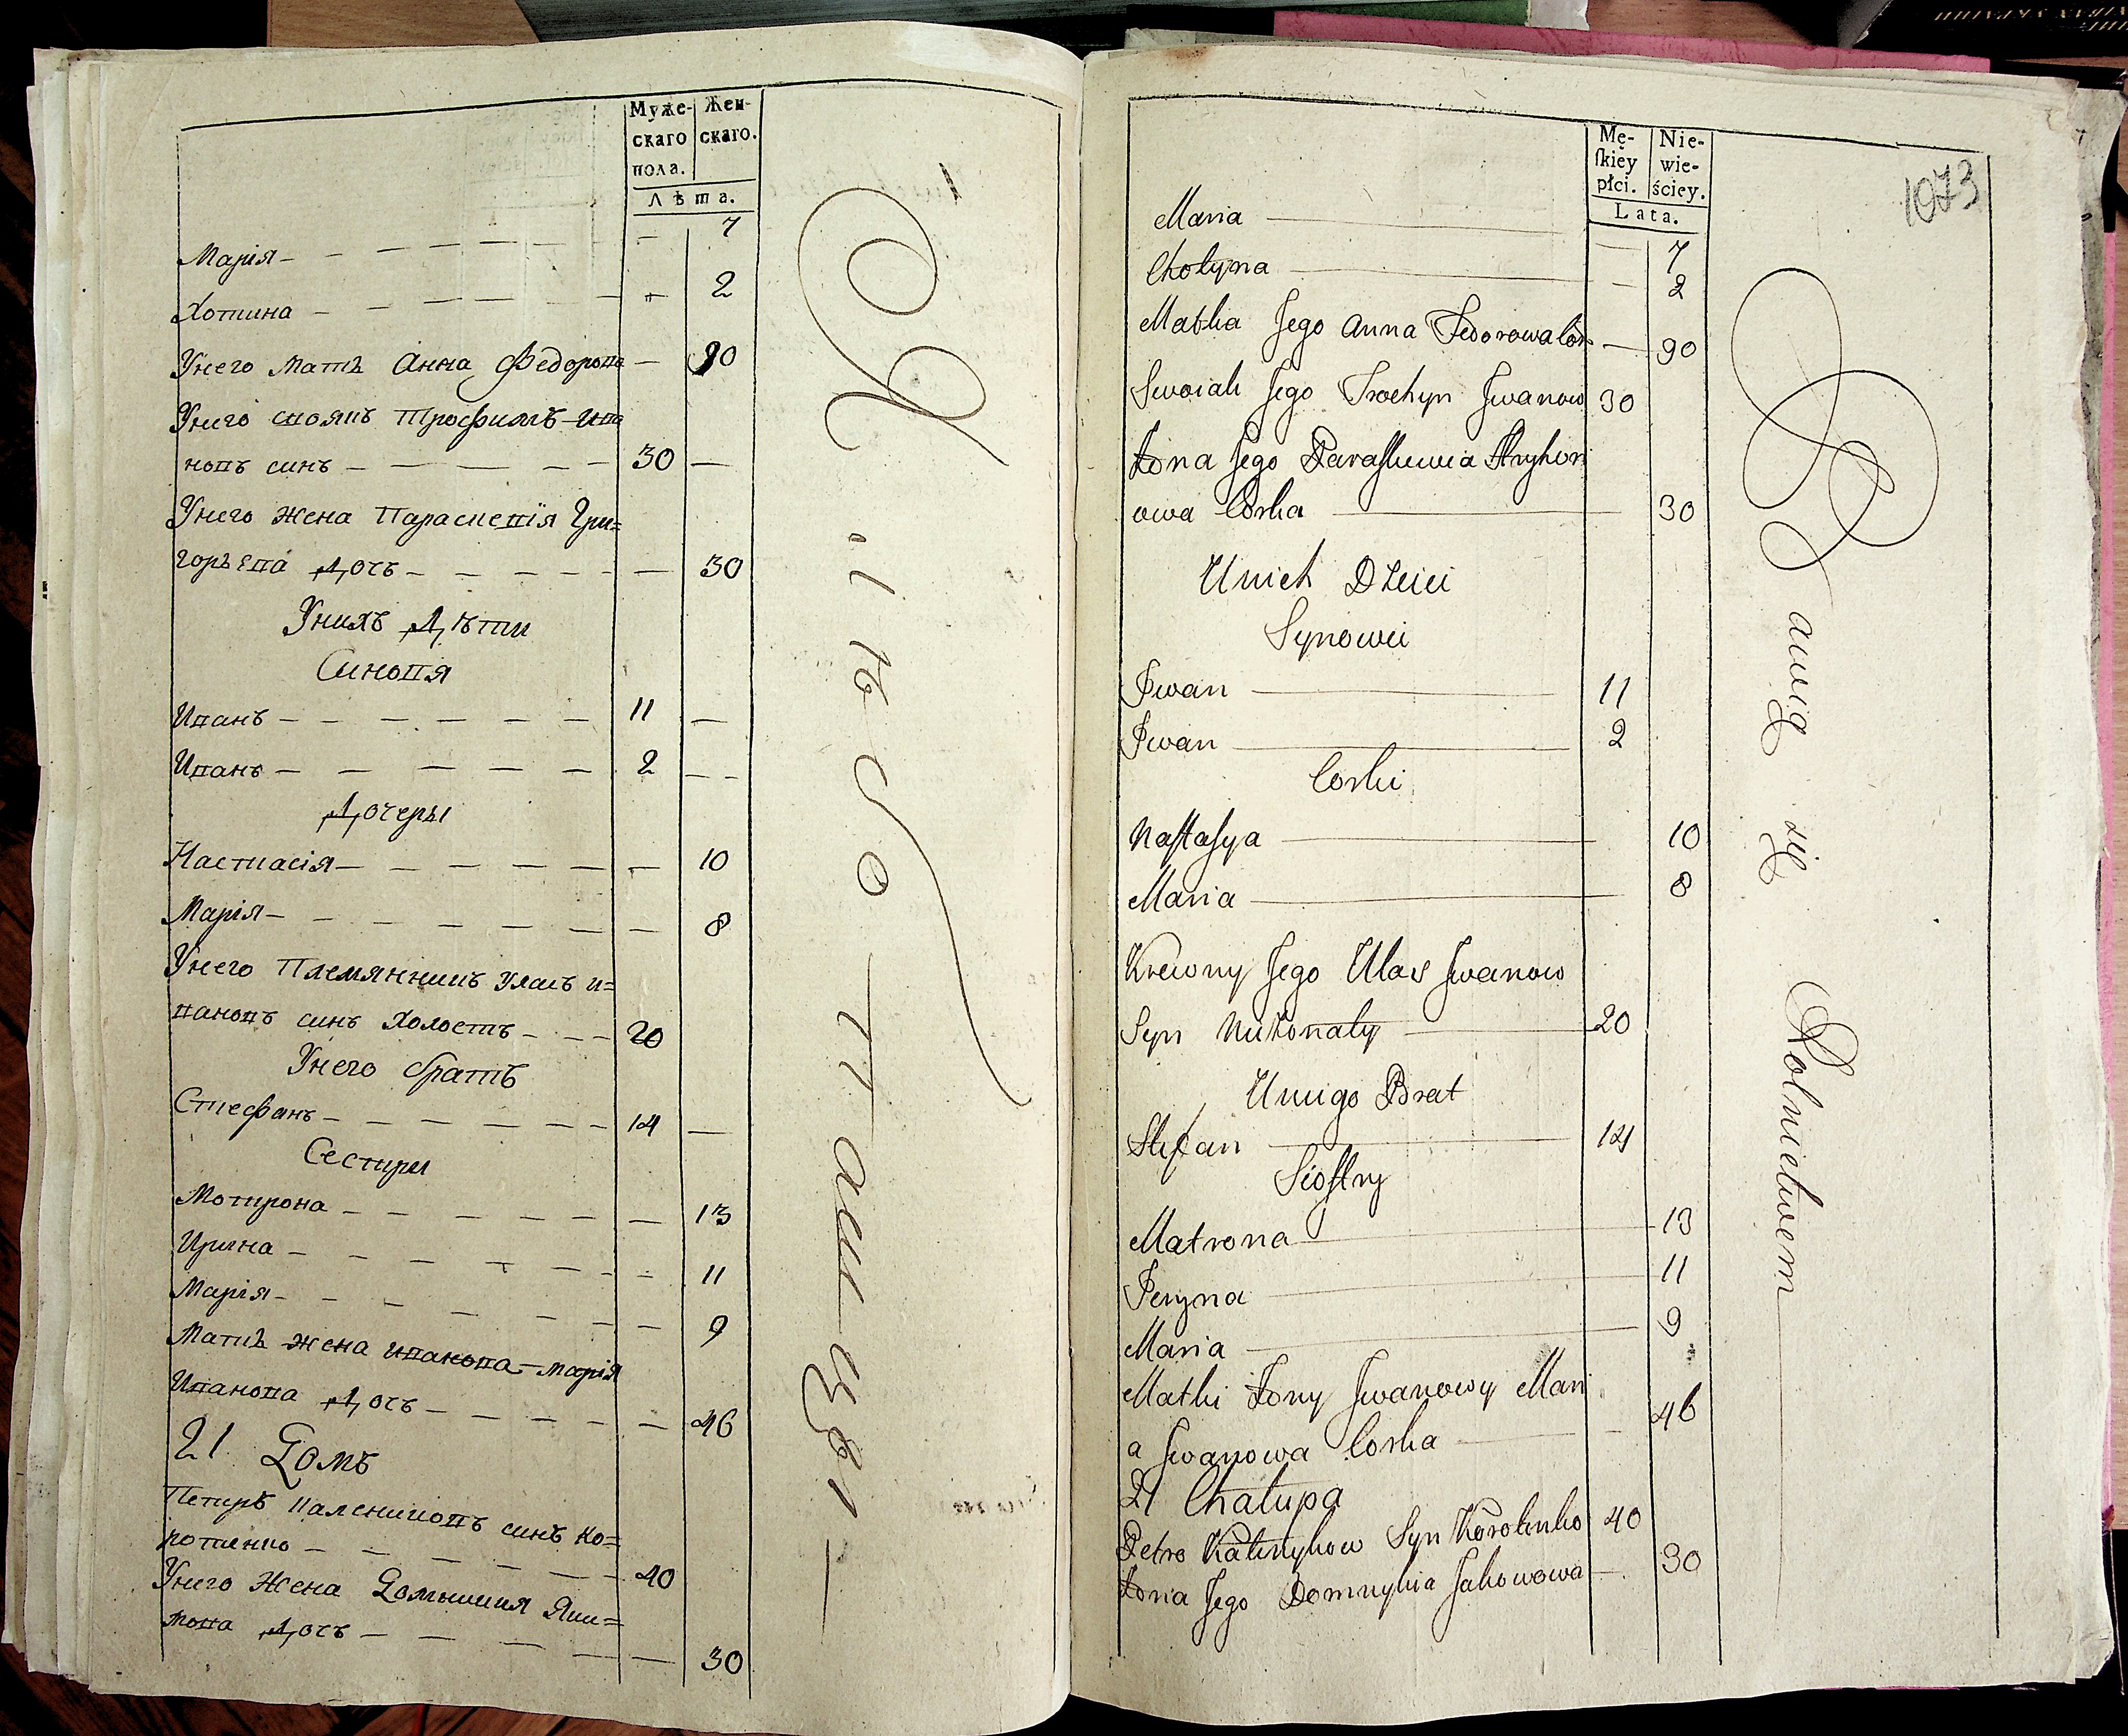 Муже-
скаго
пола.
Жен-
скаго.
Лѣта.
Марія — — 7
Хотина — — 2
Унего мать Анна Федорова — 90
Унего своякъ Трофимъ Ива
новъ синъ — 30 —
Унего жена Параскевія Гри=
горьева дочь — — 30
Унихъ Дѣти
Синовя
Иванъ — 11 —
Иванъ — 2 —
Дочеры
Настасія — — 10
Марія — — 8
Унего Племянникъ Уласъ И=
вановъ синъ холостъ — 20
Унего братъ
Стефанъ — 14 —
Сестры
Мотрона — — 13
Ирина — — 11
Марія — — 9
Мать жена Иванова Марія
Иванова дочь — — 46
21 Домъ
Петръ Калениковъ синъ Ко=
ротенко — 40
Унего Жена Домникия Яки=
мова дочь — — 30
Mę-
skiey
płci.
Nie-
wie-
ściey.
Lata.
1073
Maria — 7
Chotyna — 2
Matka Jego Anna Fedorowa Cór — 90
Swoiak Jego Trochym Iwanow 30
Żona Jego Paraskiewia Hryhori
owa Corka — 30
Unich Dzieci
Synowie
Iwan — 11
Iwan — 2
Corki
Nastasya — 10
Maria — 8
Krewny Jego Ułas Iwanow
Syn Nieżonaty — 20
Uniego Brat
Stefan — 14
Siostry
Matrona — 13
Jeryna — 11
Maria — 9
Matki Żony Iwanowy Mari
a Iwanowa Corka — 46
21 Chałupa
Petro Kalenykow Syn Korotenko 40
Żona Jego Domnykia Jakowowa — 30
Bawią się Rolnictwem